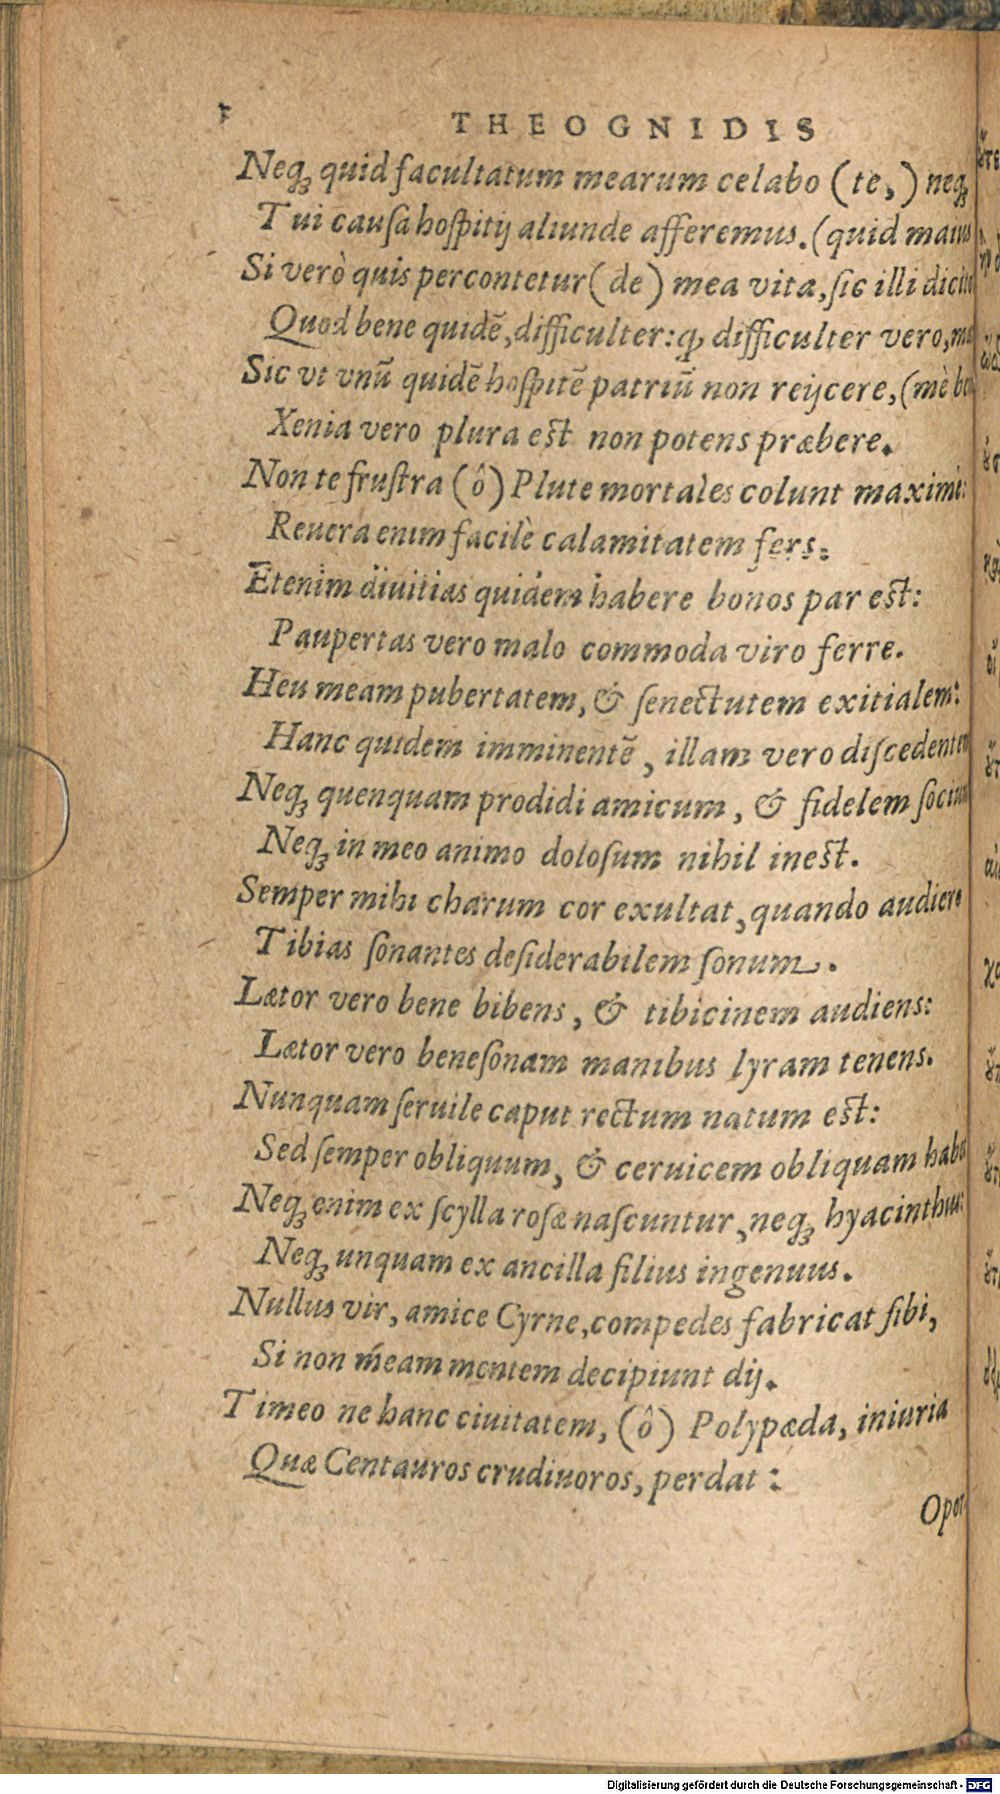 THEOGNIDIS
Neq́ꝫ quid facultatum mearum celabo (te,) neqꝫ
Tui cauſa hoſpitij aliunde afferemus. (quid maius
Si verò quis percontetur (de) mea vita, ſic illi dicito
Quod bene quidẽ, difficulter: ꝙ difficulter vero,
Sic vt vnũ quidẽ hoſpitẽ patriũ non reijcere, (mè
Xenia vero plura eſt non potens præbere.
Non te fruſtra (ô) Plute mortales colunt maximè:
Reuera enim facilè calamitatem fers:
Etenim diuitias quidem habere bonos par eſt:
Paupertas vero malo commoda viro ferre.
Heu meam pubertatem, & ſenectutem exitialem:
Hanc quidem imminentẽ, illam vero diſcedentem
Neqꝫ quenquam prodidi amicum, & fidelem ſocium
Neqꝫ in meo animo doloſum nihil ineſt.
Semper mihi charum cor exultat, quando audiero
Tibias ſonantes deſiderabilem ſonum.
Lætor vero bene bibens, & tibicinem audiens:
Lætor vero beneſonam manibus lyram tenens.
Nunquam ſeruile caput rectum natum eſt:
Sed ſemper obliquum, & ceruicem obliquam
Neqꝫ enim ex ſcylla roſæ naſcuntur, neqꝫ hyacinthus:
Neqꝫ unquam ex ancilla filius ingenuus.
Nullus vir, amice Cyrne, compedes fabricat ſibi,
Si non meam mentem decipiunt dij.
Timeo ne hanc ciuitatem, (ô) Polypæda, iniuria
Quæ Centauros crudiuoros, perdat:
Opor
Digitalisierung gefördert durch die Deutsche Forschungsgemeinschaft - DFG